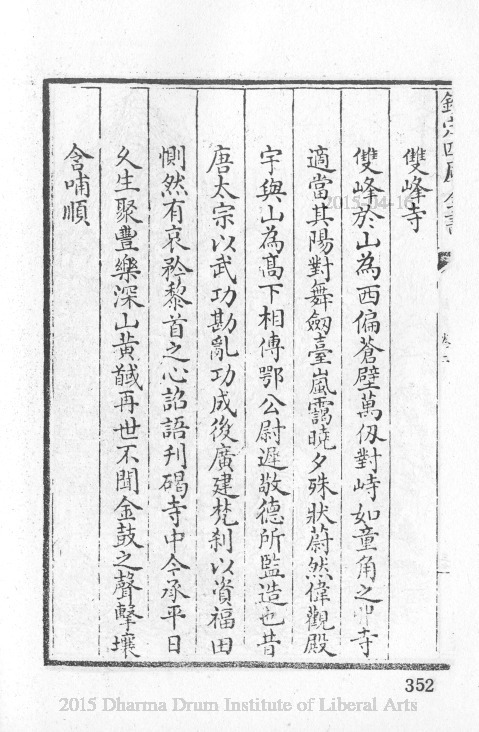 欽定四庫全書
卷二
雙峰寺
雙峰於山為西偏蒼壁萬仭對峙如童角之丱寺
適當其陽對舞劔臺嵐靄曉夕殊狀蔚然偉觀殿
宇與山為髙下相傳鄂公尉遲敬德所監造也昔
唐太宗以武功勘亂功成後廣建梵刹以資福田
惻然有哀矜黎首之心詔語刋碣寺中今承平日
久生聚豐樂深山黄馘再世不聞金鼓之聲擊壤
含哺順
2015-04-16
352
2015 Dharma Drum Institute of Liberal Arts